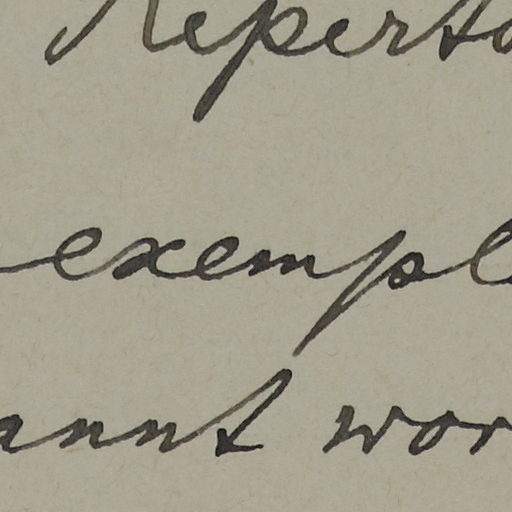 Reperto
exempl
annt wor